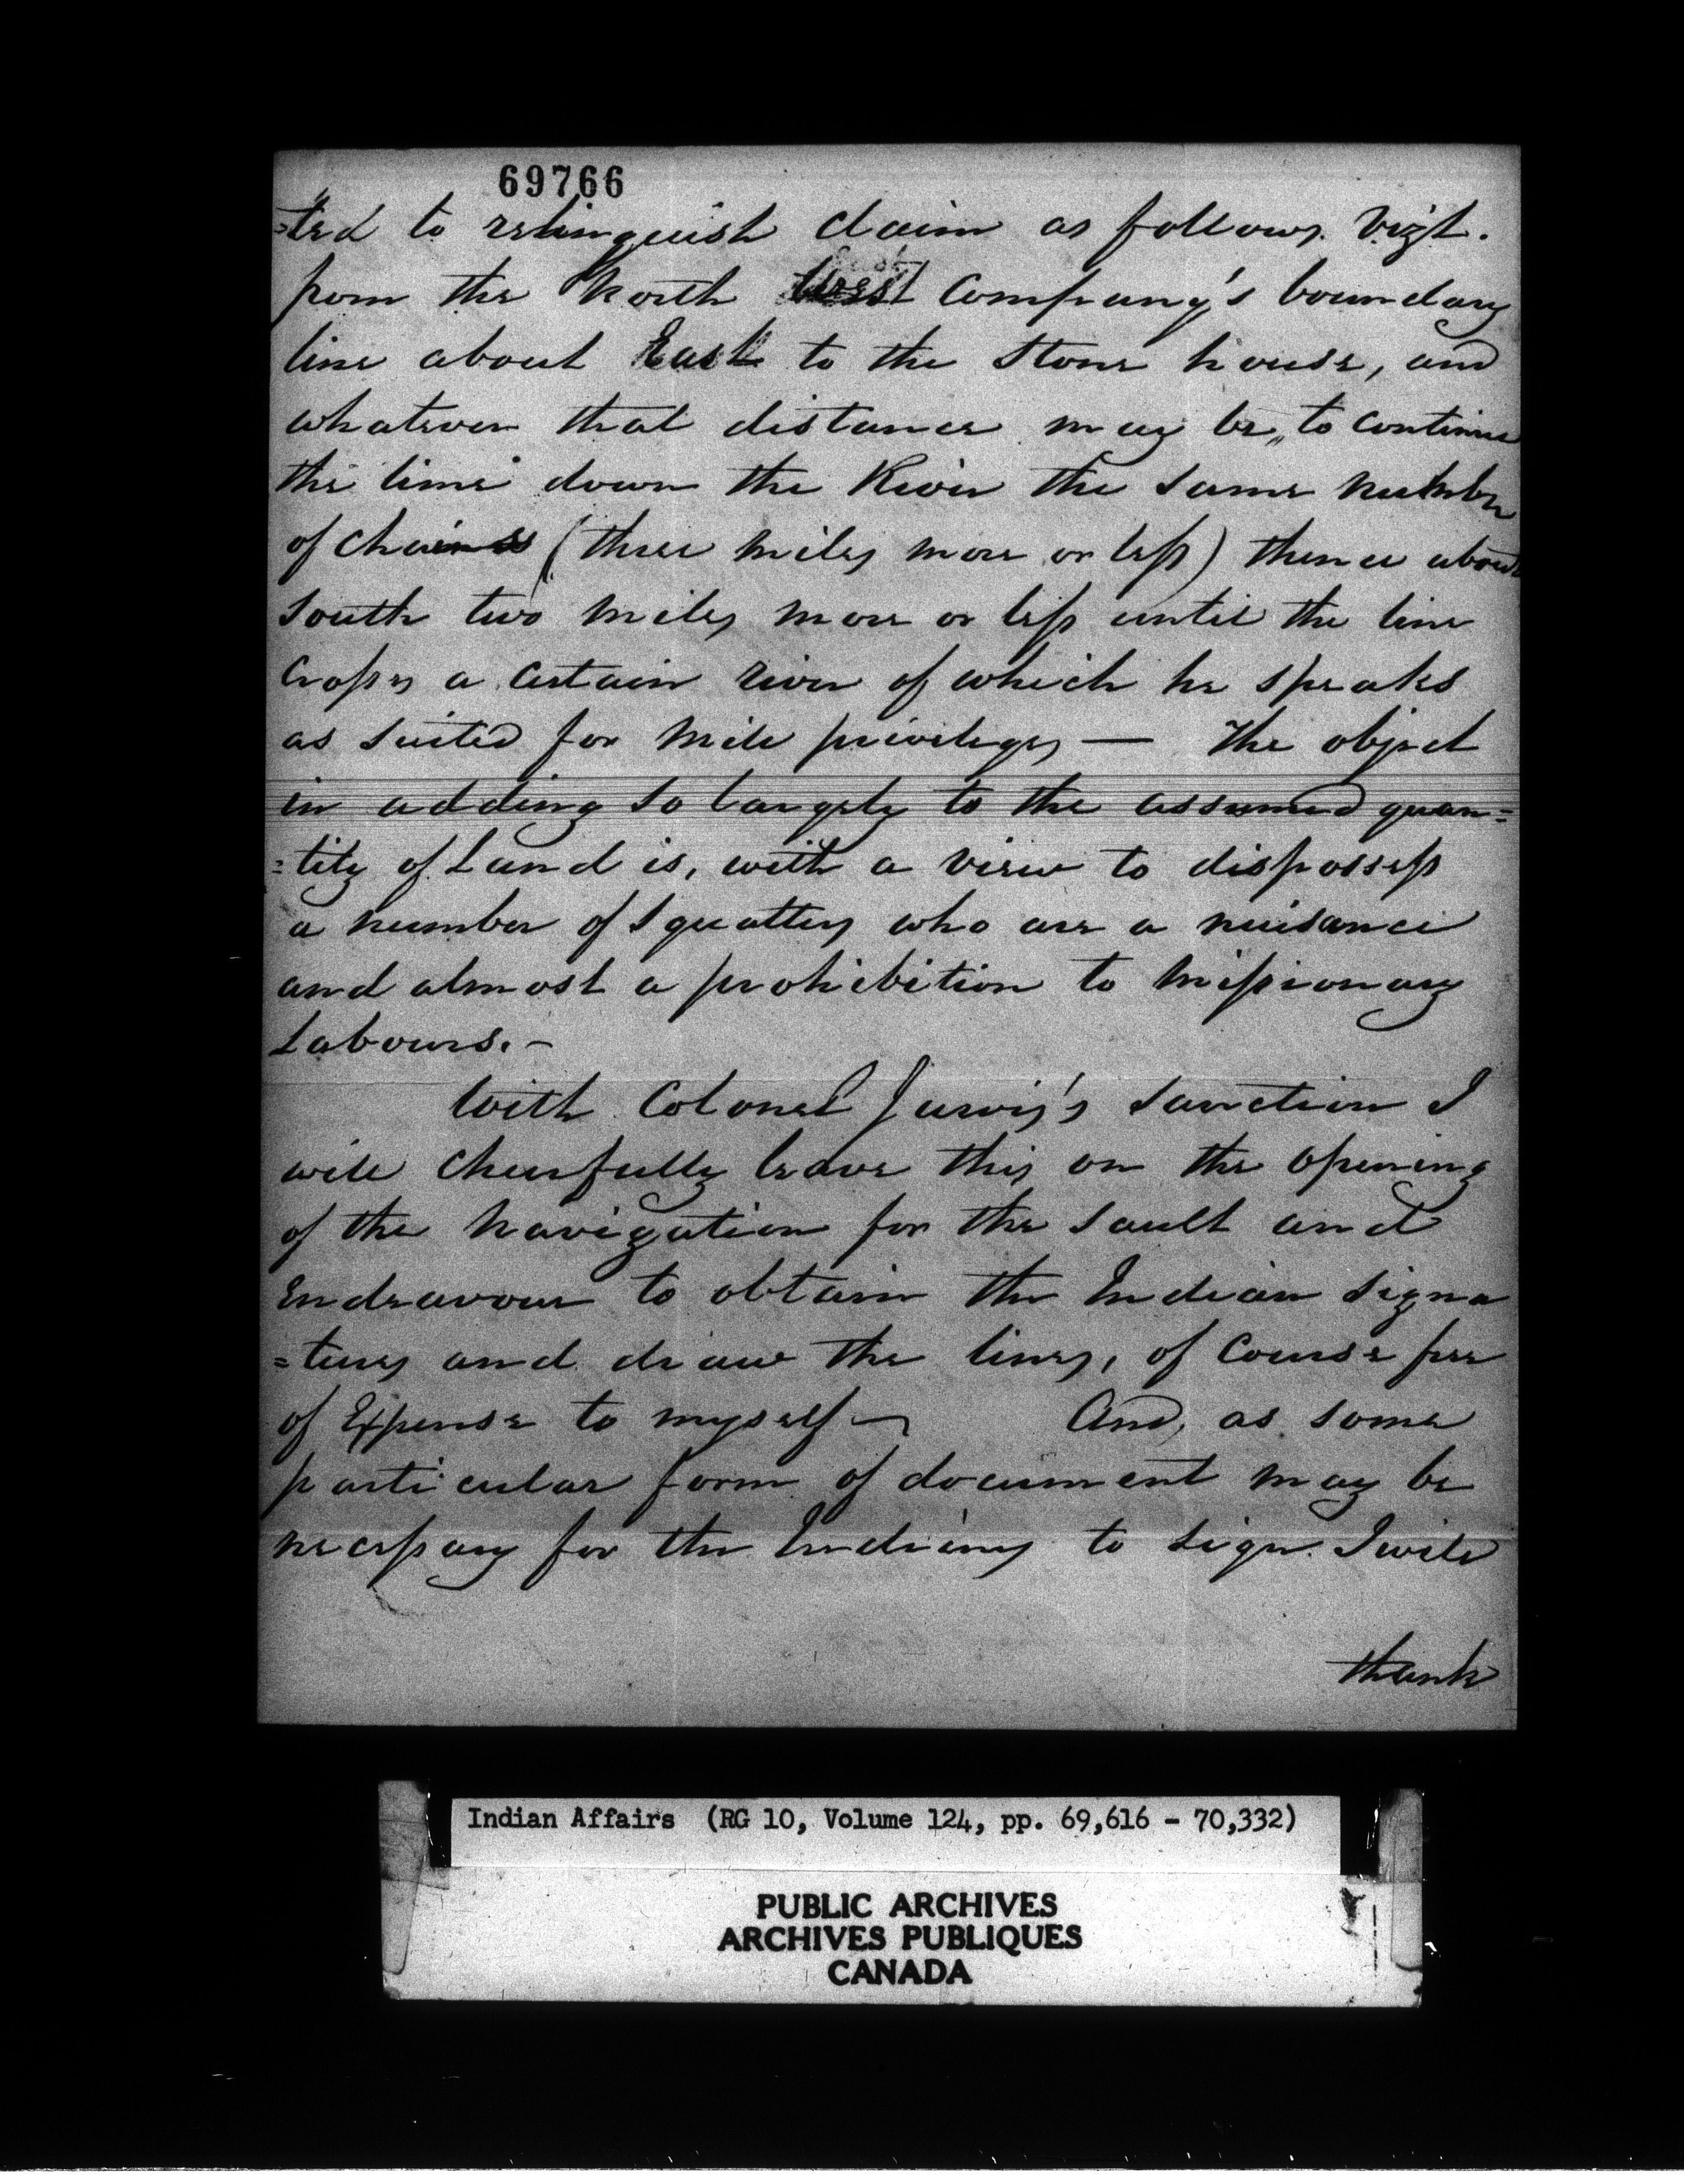 69766
=ted to relinquish claim as follows. Vizt.
from the North West Company's boundary
line about East to the Stone house, and
whatever that distance may be, to continue
the line down the River the same number
of chains (three miles more or less) thence about
South two miles more or less until the line
crosses a certain river of which he speaks
as suited for Mill privileges — The object
in adding so largely to the assumed quan=
=tity of Land is, with a view to dispossess
a number of Squatters who are a nuisance
and almost a prohibition to Missionary
Labours.—
With Colonel Jarvis's sanction I
will cheerfully leave this on the opening
of the Navigation for the Sault and
Endeavour to obtain the Indian Signa
=tures and draw the lines, of course free
of Expense to myself — And, as some
particular form of document may be
necessary for the Indians to sign I will
thank
Indian Affairs (RG 10, Volume 124, pp. 69,616 - 70,332)
PUBLIC ARCHIVES
ARCHIVES PUBLIQUES
CANADA